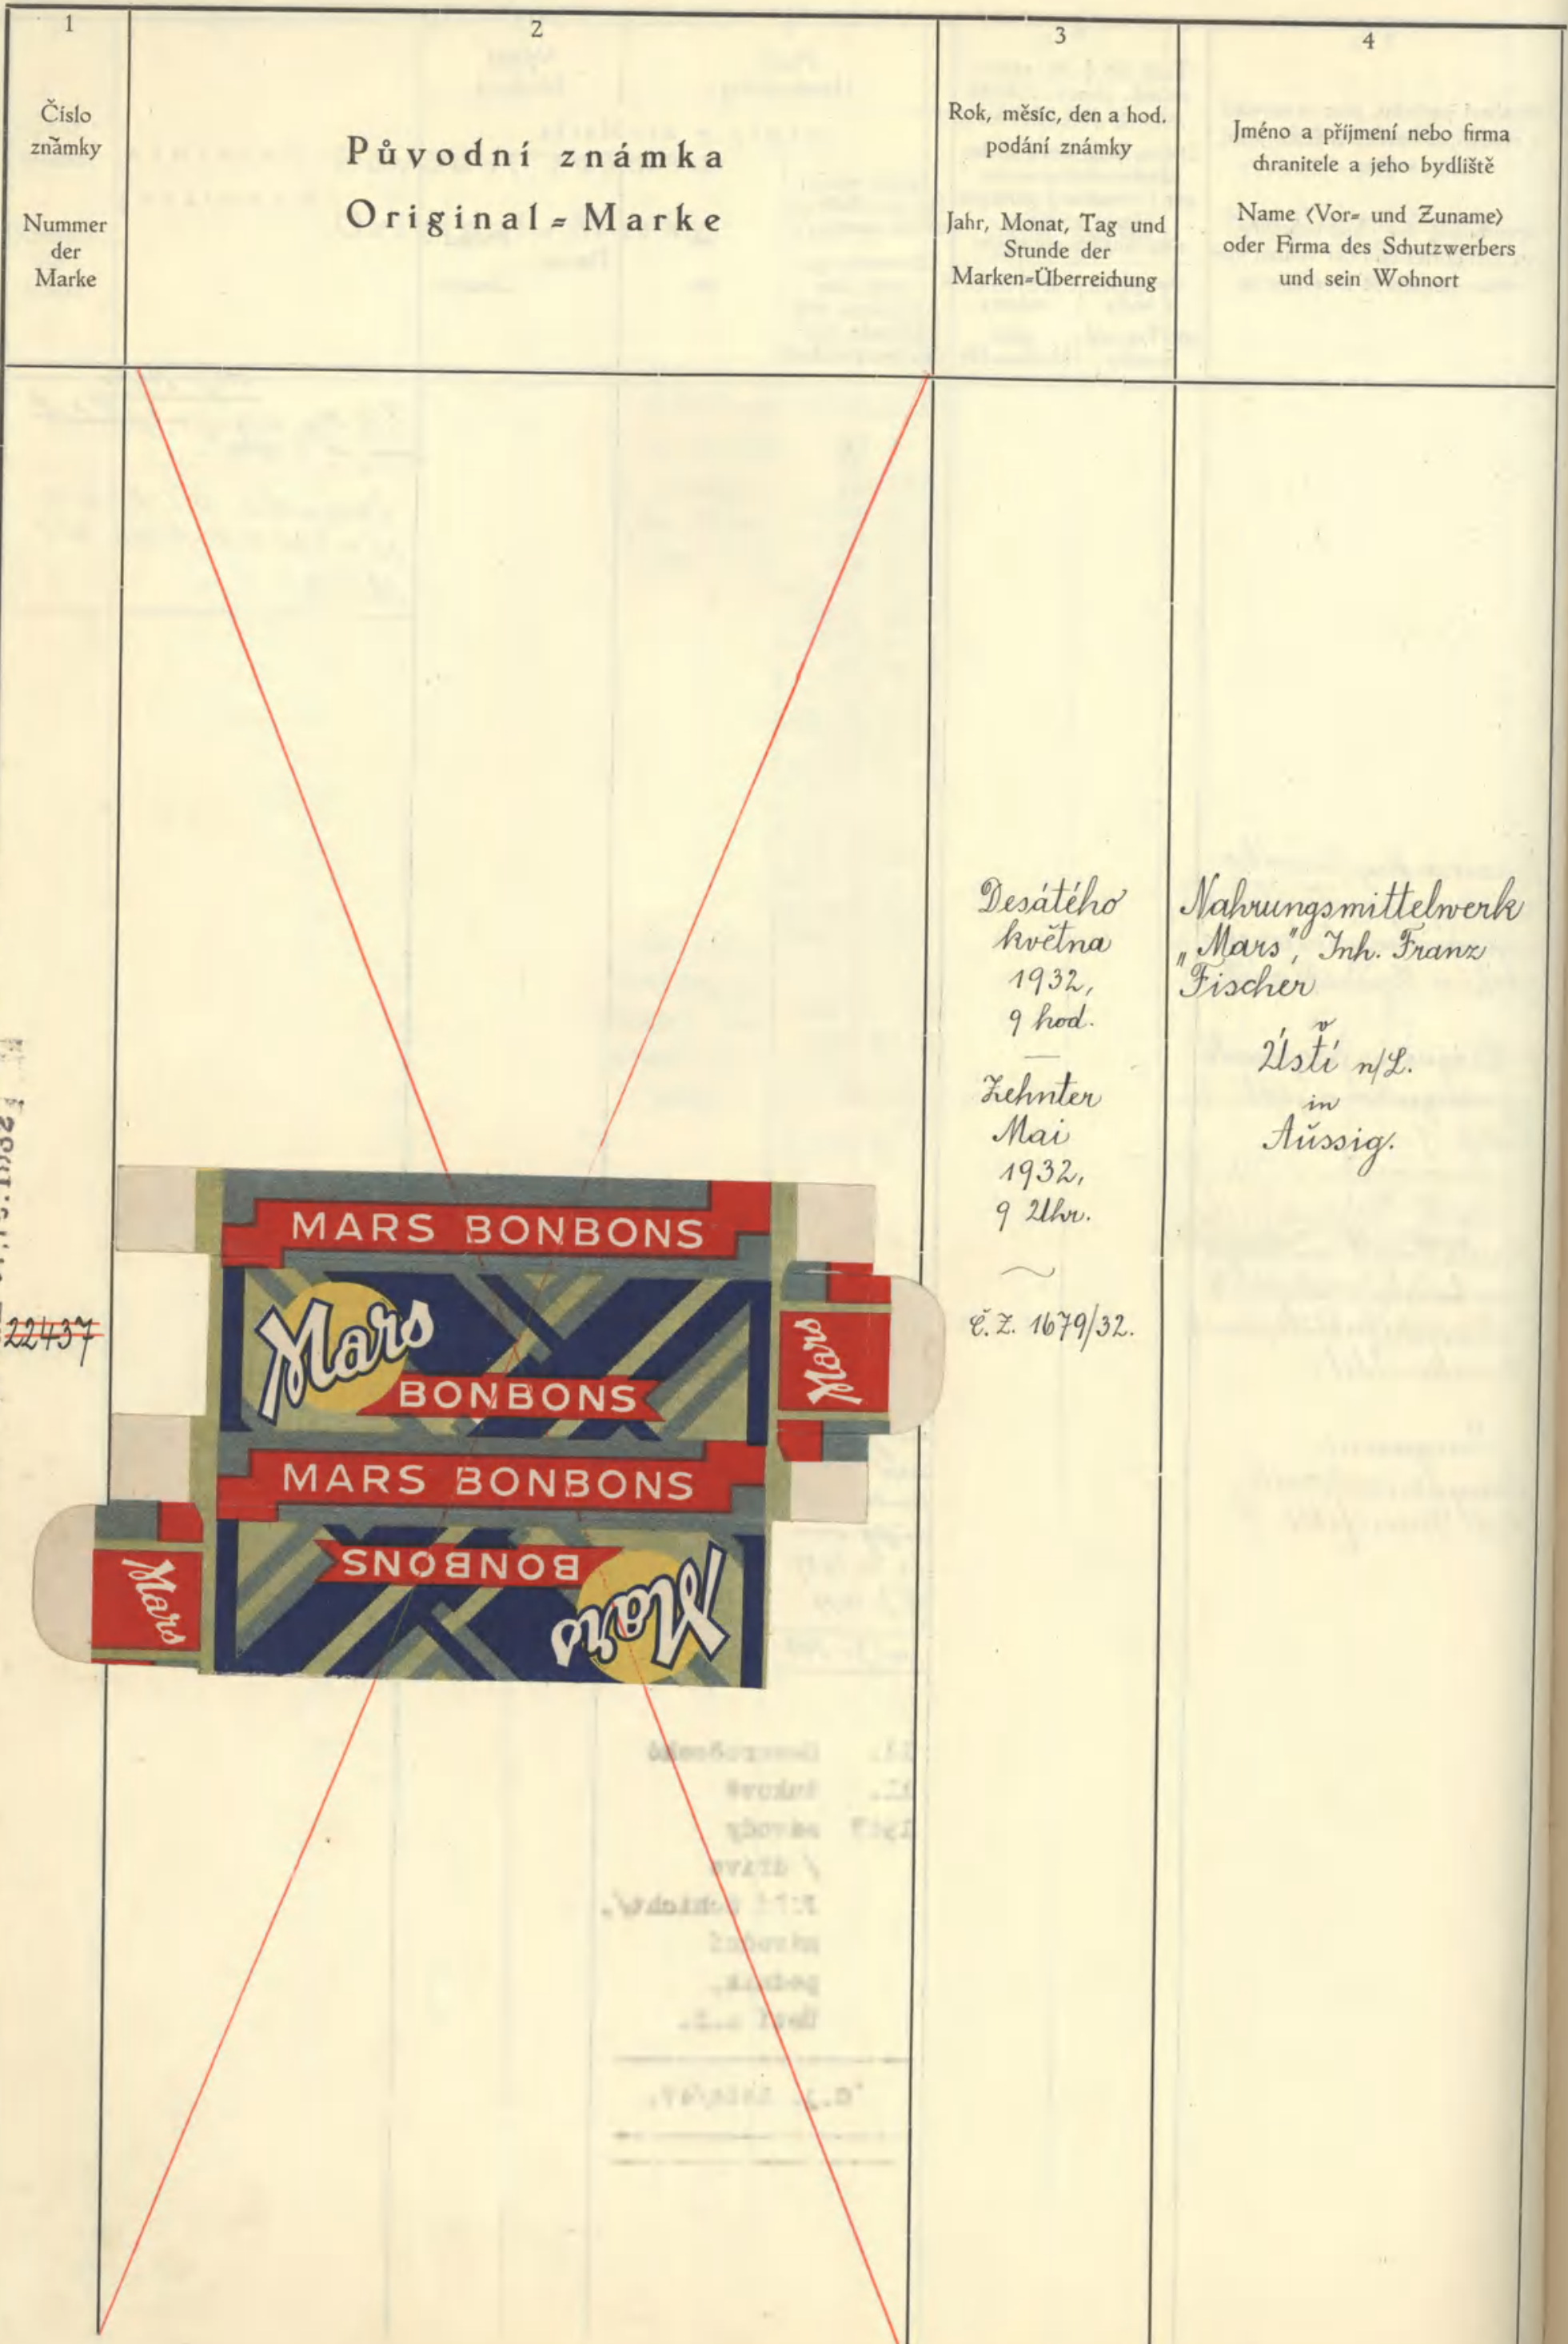 1
Číslo
známky
Nummer
der
Marke
2
Původní známka
Original=Marke
3
Rok, měsíc, den a hod.
podání známky
Jahr, Monat, Tag und
Stunde der
Marken=Überreichung
4
Jméno a příjmení nebo firma
chranitele a jeho bydliště
Name (Vor= und Zuname)
oder Firma des Schutzwerbers
und sein Wohnort
22437
MARS BONBONS
Mars
BONBONS
Mars
MARS BONBONS
Mars
BONBONS
Mars
Desátého
května
1932,
9 hod.
Zehnter
Mai
1932,
9 Uhr.
Č.Z. 1679/32.
Nahrungsmittelwerk
„Mars", Inh. Franz
Fischer
v
Ústí n/L.
in
Aussig.